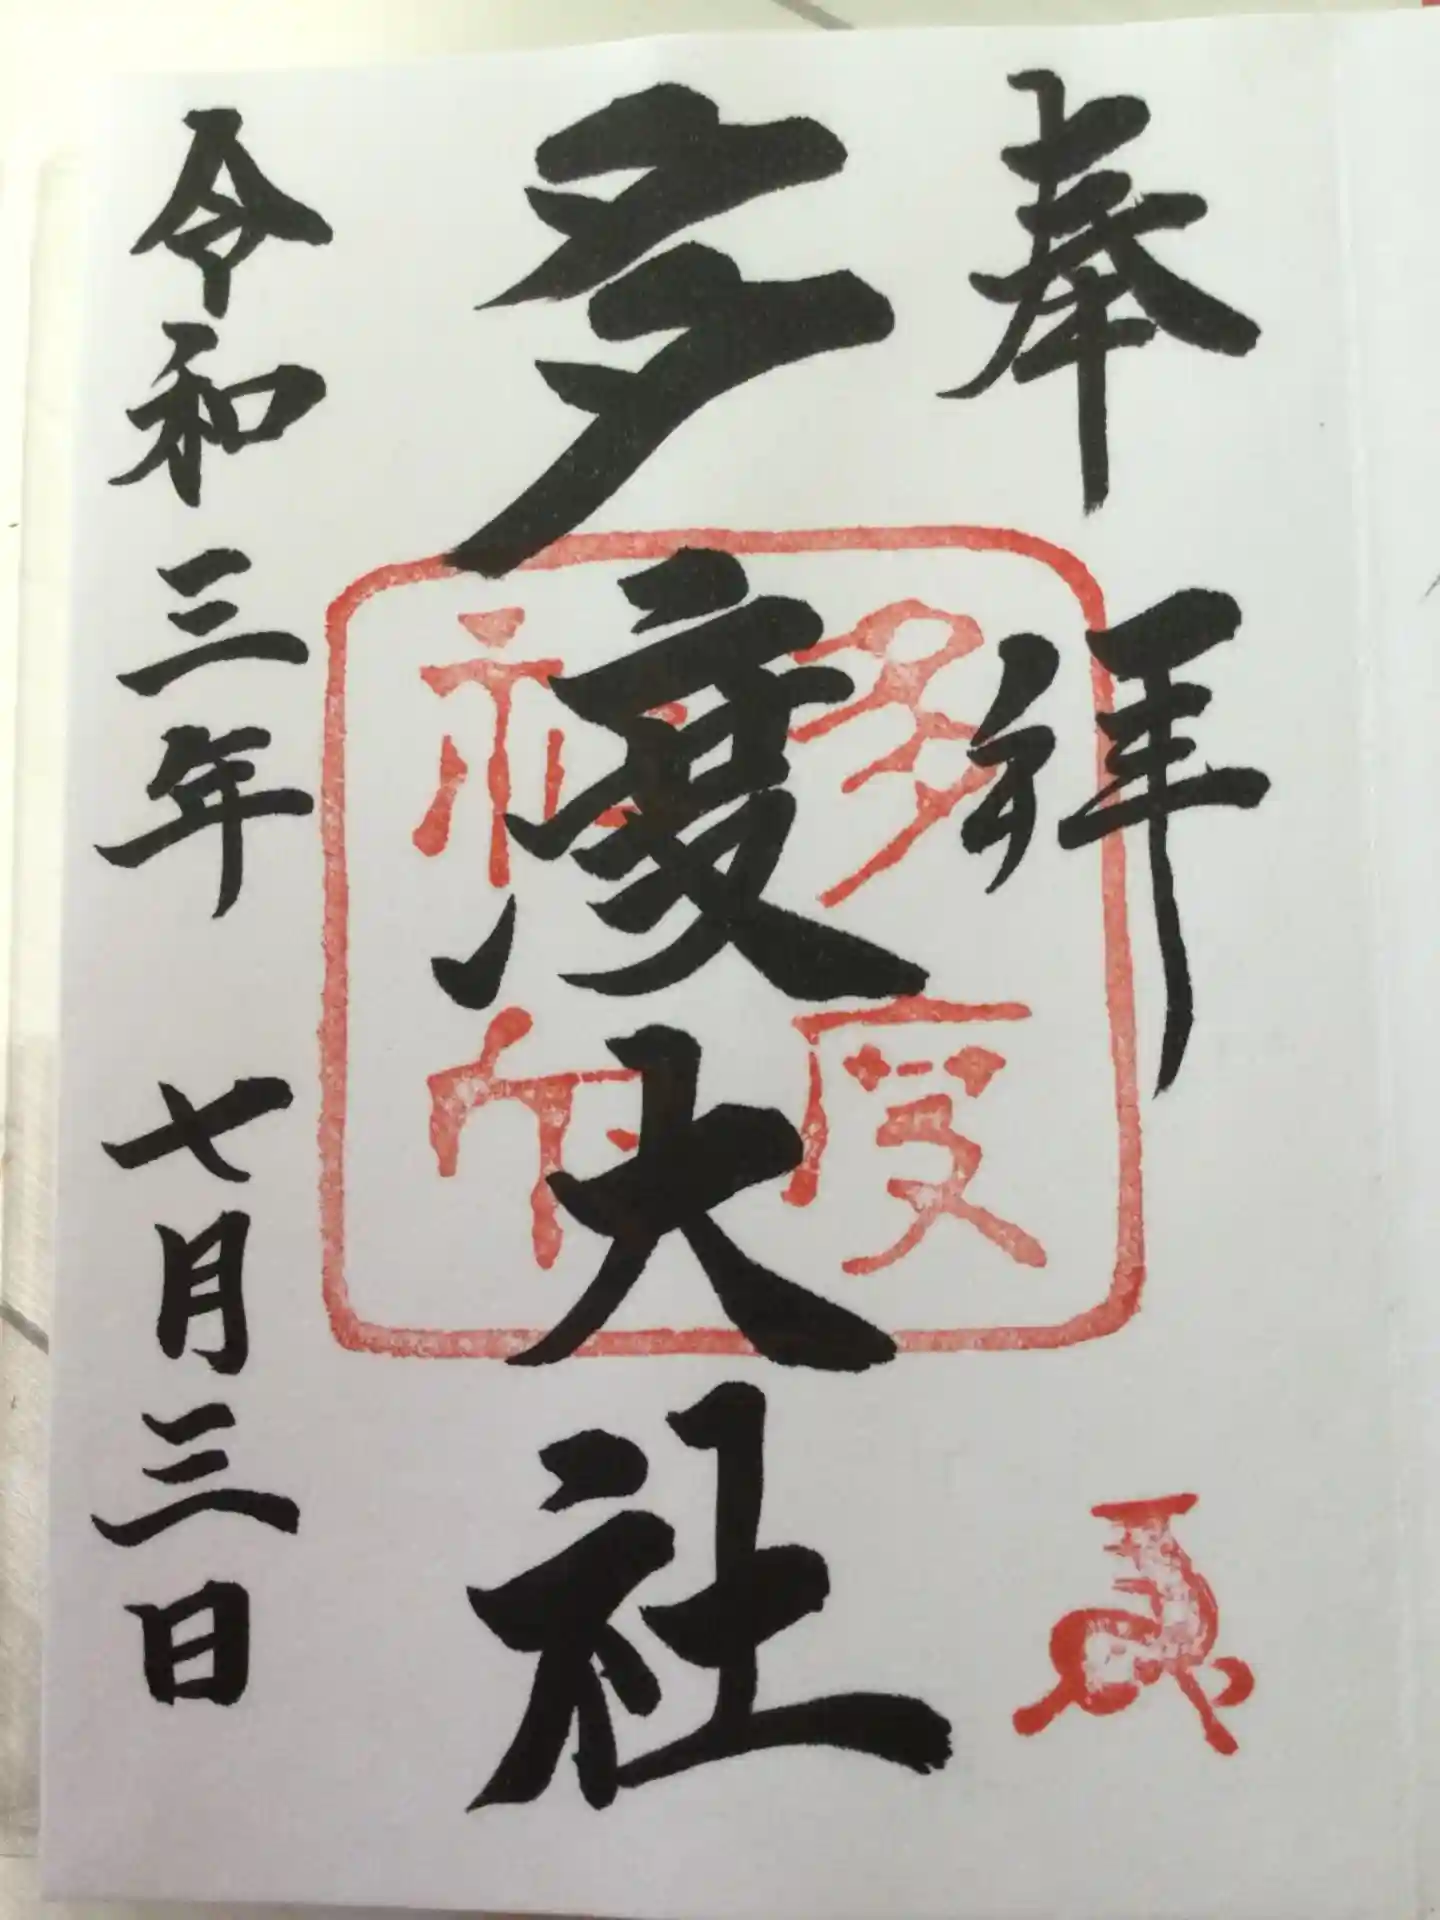 奉拝
多度大社
多度
神社
令和三年 七月三日